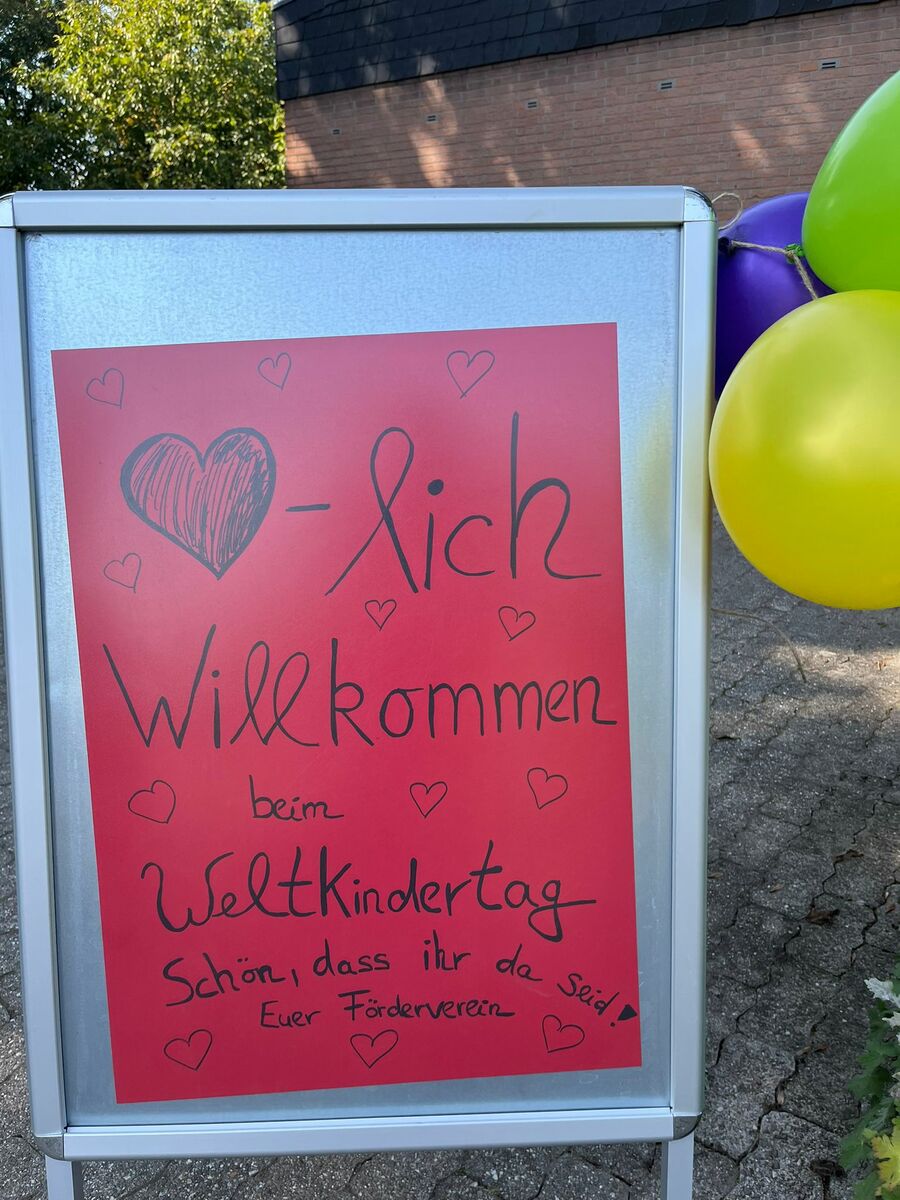 ♥-lich
Willkommen
beim
Weltkindertag
Schön, dass ihr da seid!
Euer Förderverein